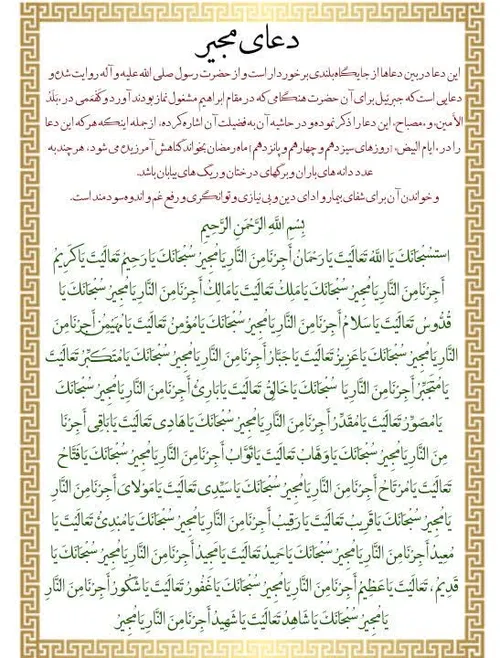 دعای مجیر
این دعا در بین دعاها از جایگاه بلندی برخوردار است و از حضرت رسول صلی الله علیه و آله روایت شده و
دعایی است که جبرئیل برای آن حضرت هنگامی که در مقام ابراهیم مشغول نماز بودند آورد و کفعمی در ،بَلَدُ
الأمین، و ،مصباح، این دعا را ذکر نموده و در حاشیه آن به فضیلت آن اشاره کرده، از جمله اینکه هر که این دعا
را در ،ایام البیض، (روزهای سیزدهم و چهاردهم و پانزدهم) ماه رمضان بخواند گناهش آمرزیده می شود، هر چند به
عدد دانه های باران و برگهای درختان و ریگ های بیابان باشد.
و خواندن آن برای شفای بیمار و ادای دین و بی نیازی و توانگری و رفع غم و اندوه سودمند است.
بِسْمِ اللَّهِ الرَّحْمَنِ الرَّحِيمِ
سُبْحَانَكَ يَا اللَّهُ تَعَالَيْتَ يَا رَحْمَانُ أَجِرْنَا مِنَ النَّارِ يَا مُجِيرُ سُبْحَانَكَ يَا رَحِيمُ تَعَالَيْتَ يَا كَرِيمُ
أَجِرْنَا مِنَ النَّارِ يَا مُجِيرُ سُبْحَانَكَ يَا مَلِكُ تَعَالَيْتَ يَا مَالِكُ أَجِرْنَا مِنَ النَّارِ يَا مُجِيرُ سُبْحَانَكَ يَا
قُدُّوسُ تَعَالَيْتَ يَا سَلامُ أَجِرْنَا مِنَ النَّارِ يَا مُجِيرُ سُبْحَانَكَ يَا مُؤْمِنُ تَعَالَيْتَ يَا مُهَيْمِنُ أَجِرْنَا مِنَ
النَّارِ يَا مُجِيرُ سُبْحَانَكَ يَا عَزِيزُ تَعَالَيْتَ يَا جَبَّارُ أَجِرْنَا مِنَ النَّارِ يَا مُجِيرُ سُبْحَانَكَ يَا مُتَكَبِّرُ تَعَالَيْتَ
يَا مُتَجَبِّرُ أَجِرْنَا مِنَ النَّارِ يَا سُبْحَانَكَ يَا خَالِقُ تَعَالَيْتَ يَا بَارِئُ أَجِرْنَا مِنَ النَّارِ يَا مُجِيرُ سُبْحَانَكَ
يَا مُصَوِّرُ تَعَالَيْتَ يَا مُقَدِّرُ أَجِرْنَا مِنَ النَّارِ يَا مُجِيرُ سُبْحَانَكَ يَا هَادِي تَعَالَيْتَ يَا بَاقِي أَجِرْنَا
مِنَ النَّارِ يَا مُجِيرُ سُبْحَانَكَ يَا وَهَّابُ تَعَالَيْتَ يَا تَوَّابُ أَجِرْنَا مِنَ النَّارِ يَا مُجِيرُ سُبْحَانَكَ يَا فَتَّاحُ
تَعَالَيْتَ يَا مُرْتَاحُ أَجِرْنَا مِنَ النَّارِ يَا مُجِيرُ سُبْحَانَكَ يَا سَيِّدِي تَعَالَيْتَ يَا مَوْلايَ أَجِرْنَا مِنَ النَّارِ
يَا مُجِيرُ سُبْحَانَكَ يَا قَرِيبُ تَعَالَيْتَ يَا رَقِيبُ أَجِرْنَا مِنَ النَّارِ يَا مُجِيرُ سُبْحَانَكَ يَا مُبْدِئُ تَعَالَيْتَ يَا
مُعِيدُ أَجِرْنَا مِنَ النَّارِ يَا مُجِيرُ سُبْحَانَكَ يَا حَمِيدُ تَعَالَيْتَ يَا مَجِيدُ أَجِرْنَا مِنَ النَّارِ يَا مُجِيرُ سُبْحَانَكَ يَا
قَدِيمُ، تَعَالَيْتَ يَا عَظِيمُ أَجِرْنَا مِنَ النَّارِ يَا مُجِيرُ سُبْحَانَكَ يَا غَفُورُ تَعَالَيْتَ يَا شَكُورُ أَجِرْنَا مِنَ النَّارِ
يَا مُجِيرُ سُبْحَانَكَ يَا شَاهِدُ تَعَالَيْتَ يَا شَهِيدُ أَجِرْنَا مِنَ النَّارِ يَا مُجِيرُ